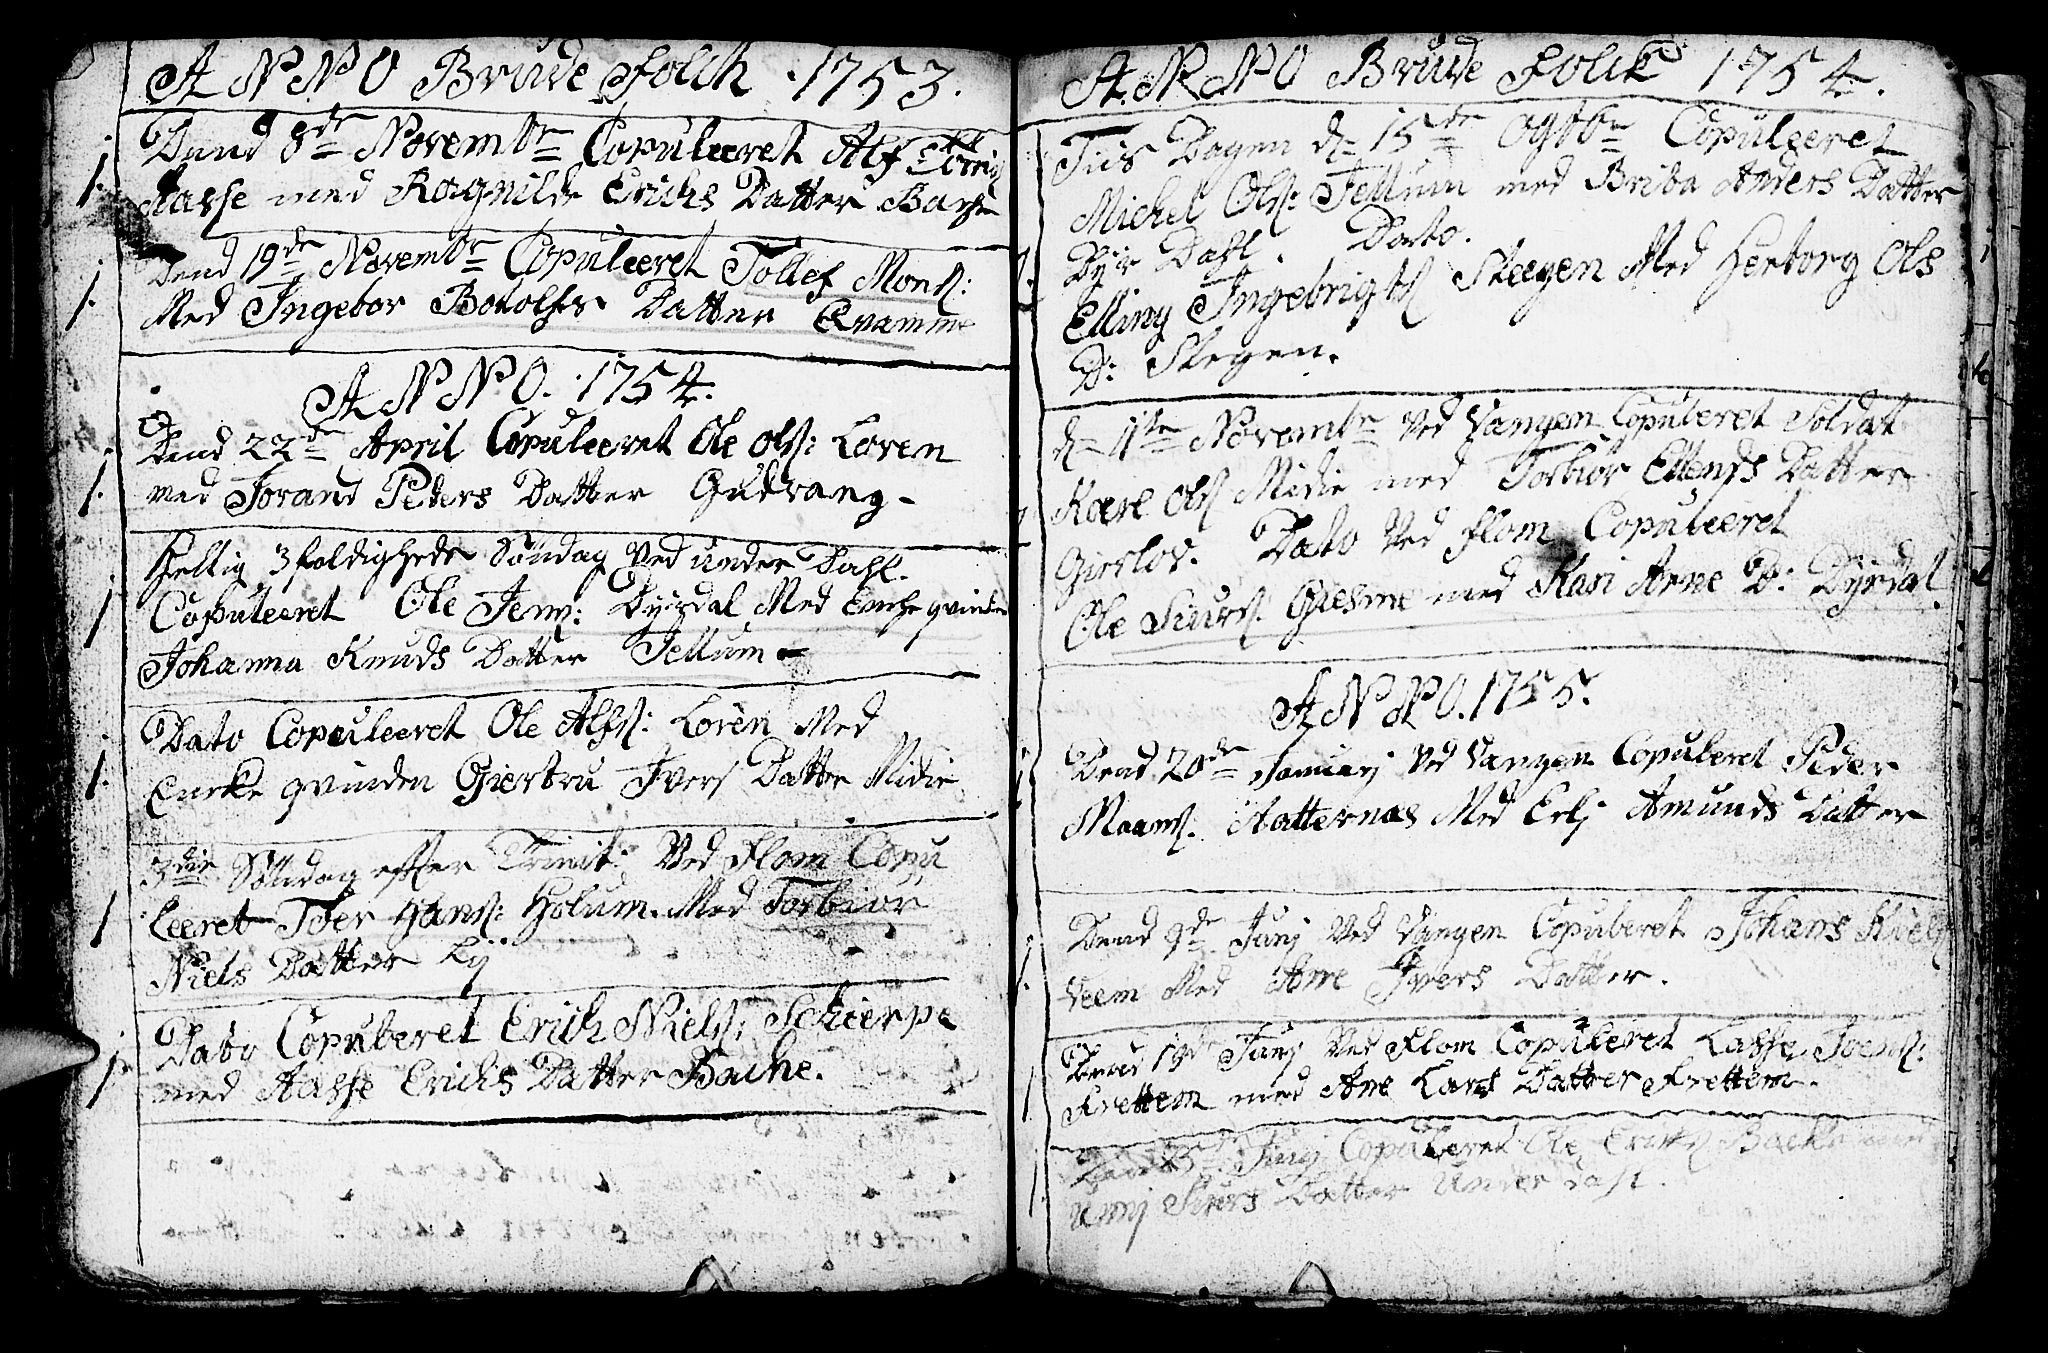 ANNO Brude Folck . 1753.
Dend 8de Novembr Copuleeret Alf
1. Aasse med Ragnilde Erichs Datter Bache
Dend 19de Novembr Copuleeret Tollef Monſ:
1. Med Ingebor Botolfs Datter Qvamme
ANNO. 1754.
Dend 22de April Copuleeret Ole Olſ: Loven
1. med Jorand Peders Datter Gudvang-
Hellig 3foldigheds Søndag Ved under Dahl.
1 Copuleeret Ole Jenſ: Dyrdal Med Enche qvinden
Johanna Knuds Datter Fellum -
Dato Copuleeret Ole Alfſ: Loven Med
1. Encke qvinden Giertru Ivers Datter Midie
3die Søndag efter Trinit: Ved Flom Copu
1 leeret Toer Hanſ: Holum. Med Torbiør
Niels Datter Ly
Dato Copuleret Erich Nielſ: Schierpe
1. med Aasse Erichs Datter Bache.
ANNO Brude Folck 1754.
Tiis Dagen d= 15de Ogtbr Copuleeret
Michel Olſ: Fellum med Brita Anders Datter
Dyr Dahl. Dato.
Elling Ingebrigtſ Skeegen Med Herborg Ols
D: Skegen.
d= 1ste Novembr Ved Vangen Copuleret Soldat
Karl Olſ Midie med Torbiør Ellends Datter
Gieslos. Dato Ved Flom Copuleeret
Ole Siurſ: Giesme med Kari Arne D: Dyrdal.
ANNO. 1755.
Dend 20de Januarj Ved Vangen Copuleret Peder
Maanſ: Hatternæs Med Erlj Amunds Datter
Dend 9de Junj Ved Vangen Copuleret Johans Nielſ
1. Veem Med Ane Ivers Datter.
Dend 19de Junj Ved Flom Copuleret Lasse Joenſ:
1 Frettem med Ane Lars Datter Frettem.
Junj Copuleret Ole Erickſ Backe med
1. Unnj Siurs Datter Under Dahl.